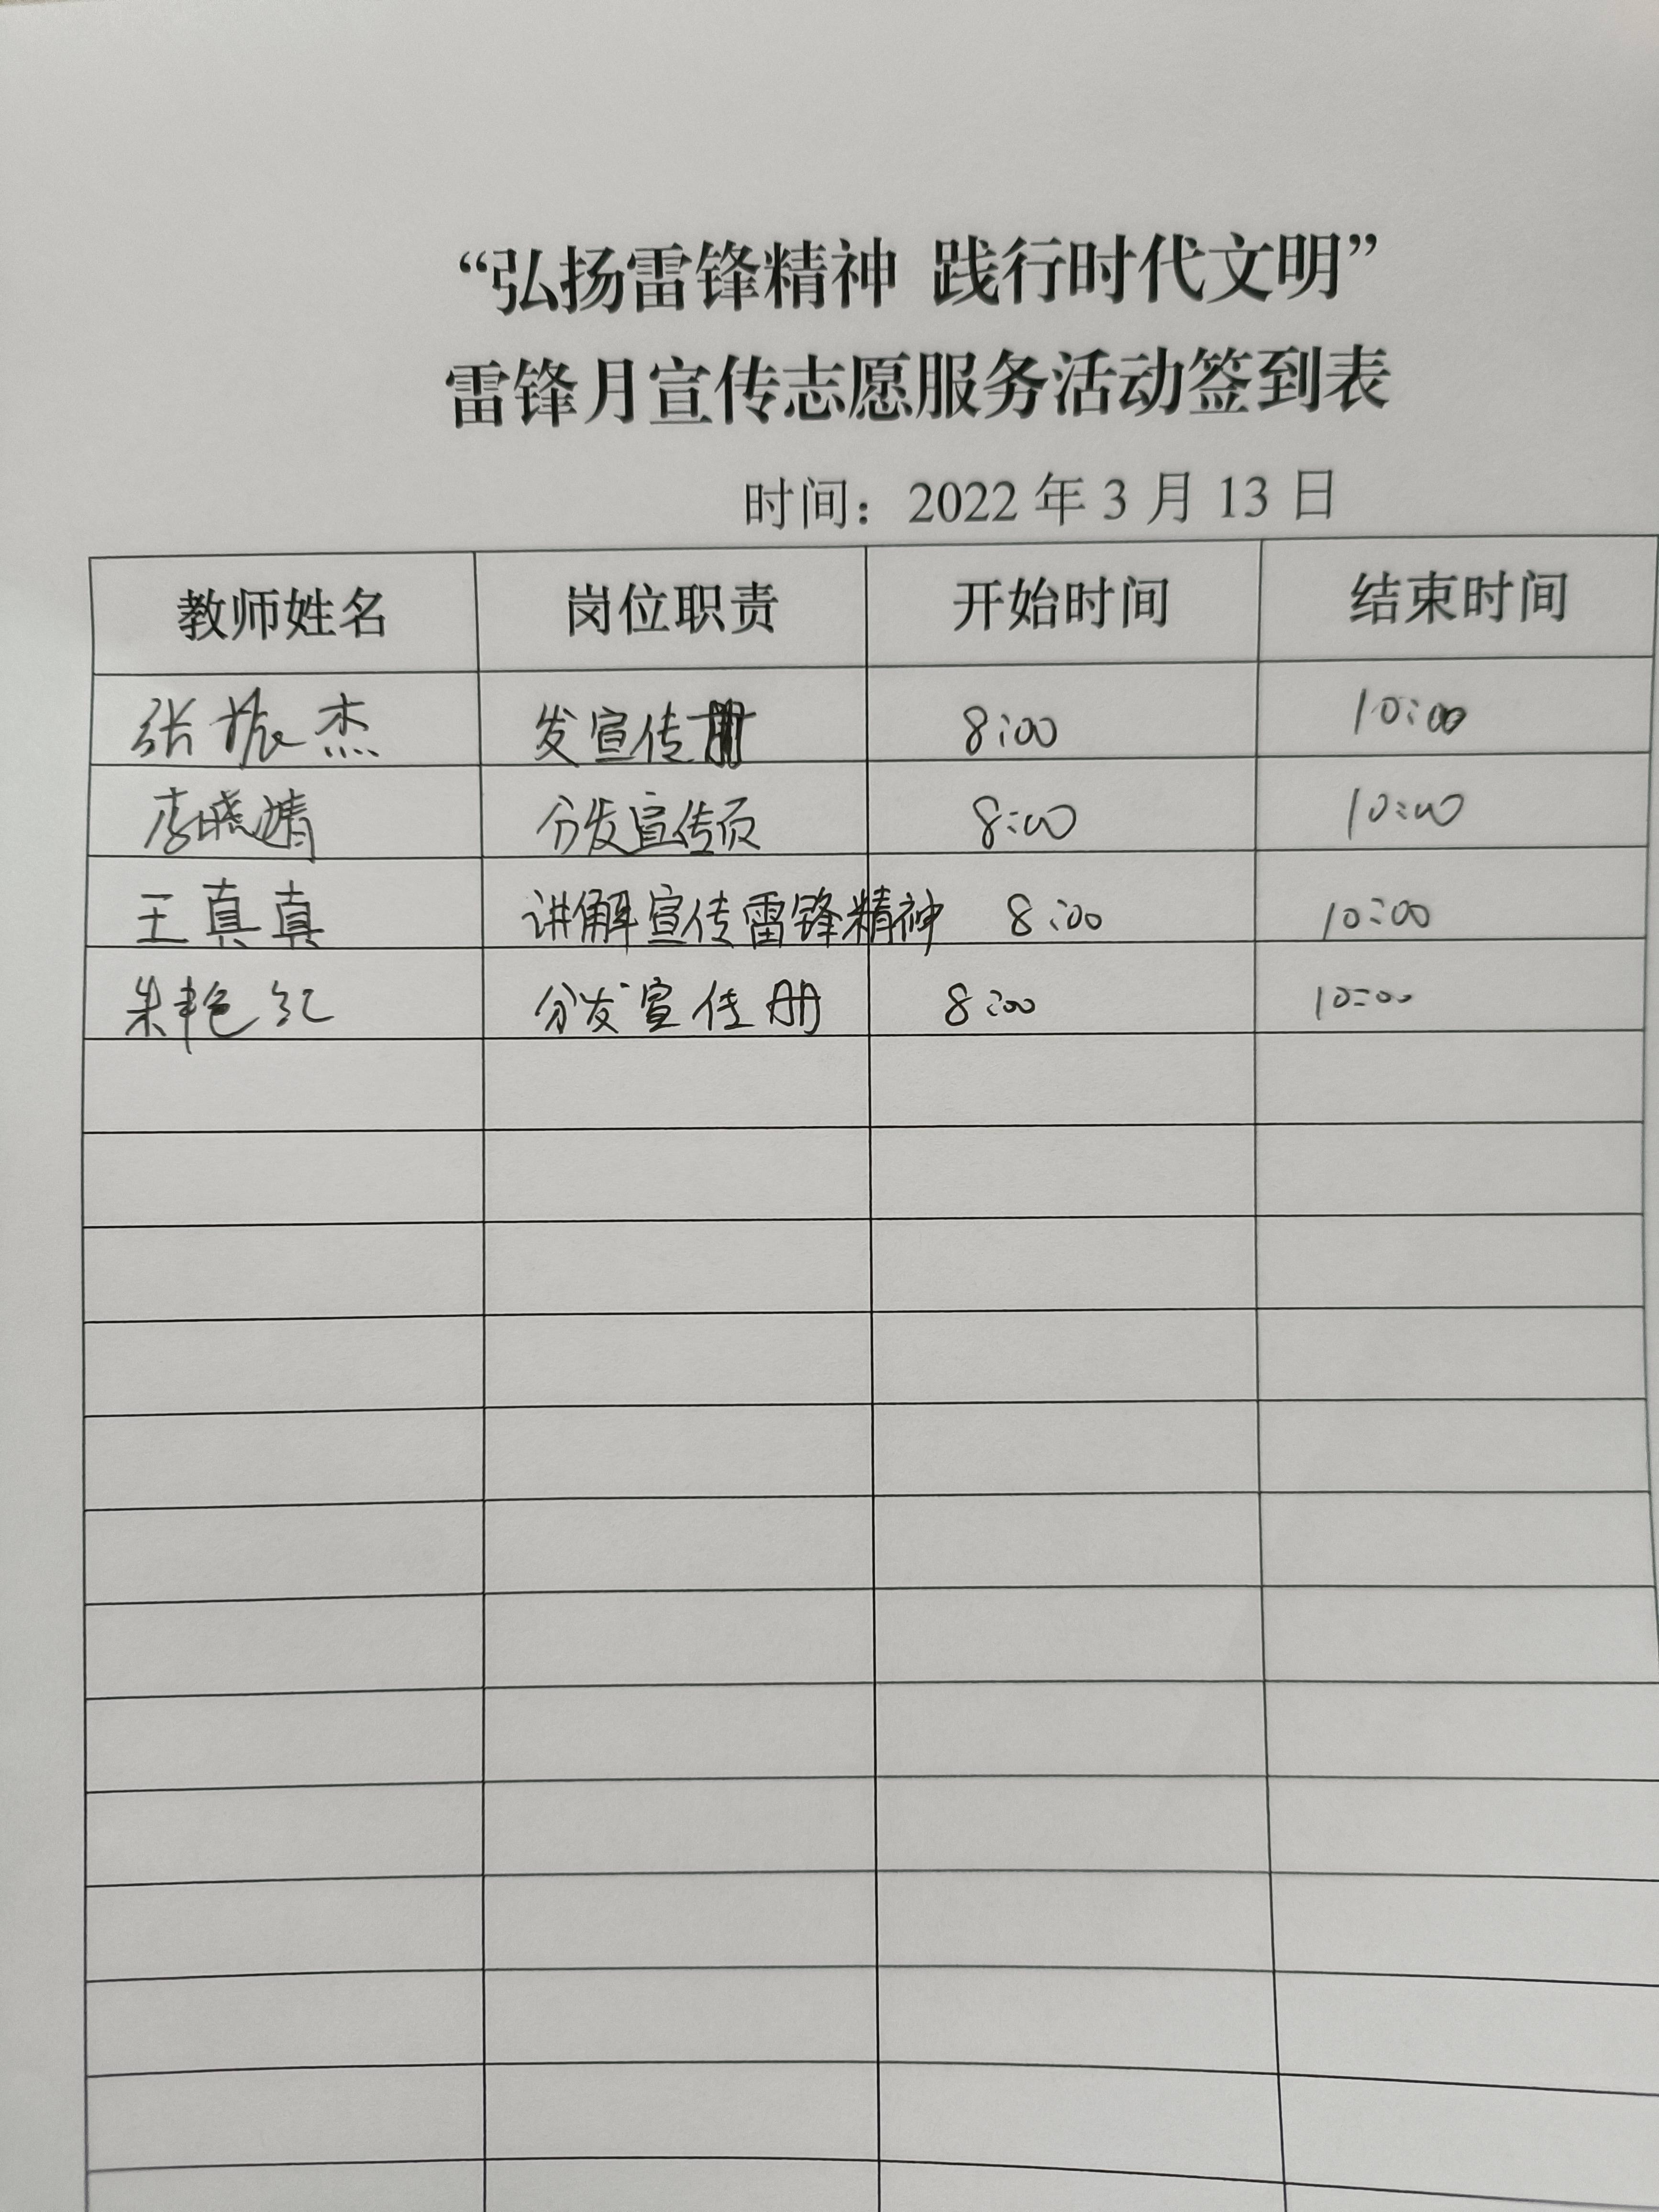 “弘扬雷锋精神 践行时代文明”
雷锋月宣传志愿服务活动签到表
时间：2022 年 3 月 13 日
教师姓名 岗位职责 开始时间 结束时间
张振杰 发宣传册 8:00 10:00
李晓婧 分发宣传页 8:00 10:00
王真真 讲解宣传雷锋精神 8:00 10:00
朱艳红 分发宣传册 8:00 10:00